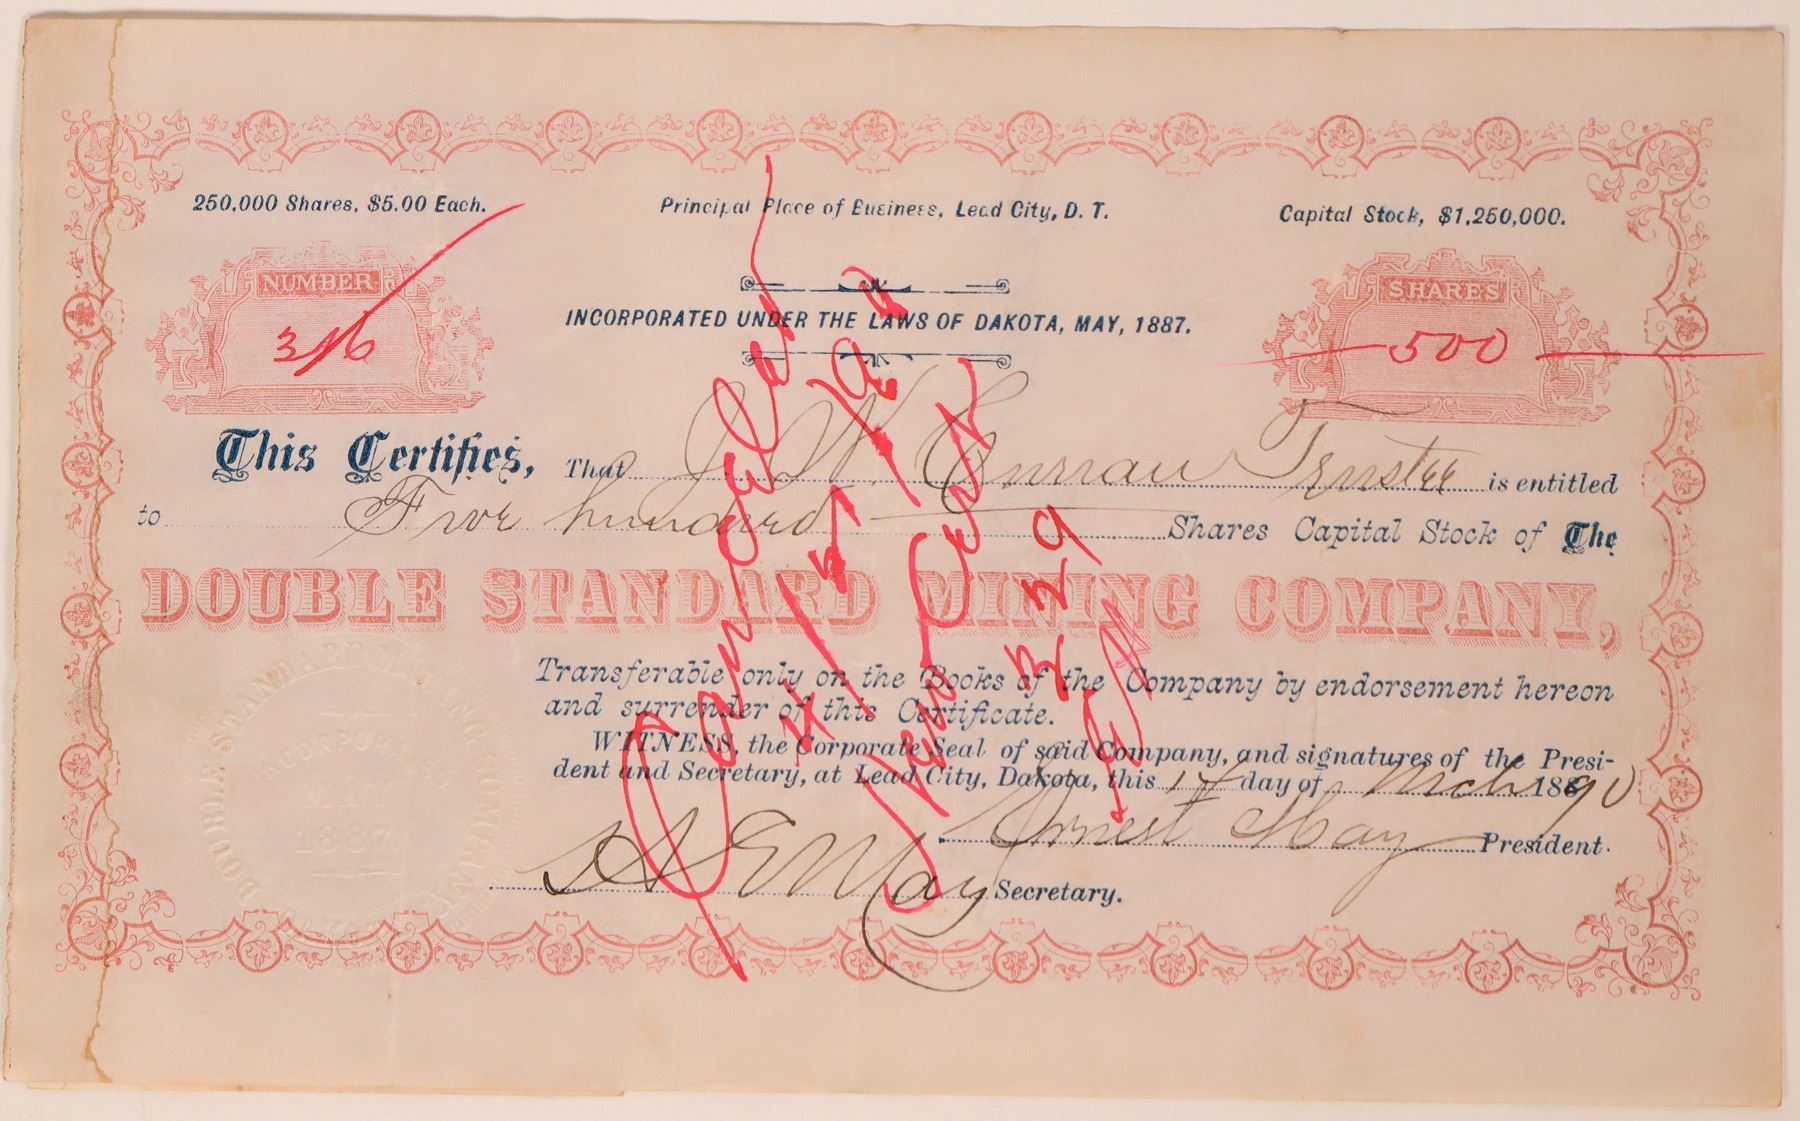 250,000 Shares, $5.00 Each.
Principal Place of Business, Lead City, D. T.
Capital Stock, $1,250,000.
NUMBER
316
SHARES
500
INCORPORATED UNDER THE LAWS OF DAKOTA, MAY, 1887.
This Certifies, That J. W. Curran Trustee is entitled
to Five hundred Shares Capital Stock of The
DOUBLE STANDARD MINING COMPANY,
Transferable only on the Books of the Company by endorsement hereon
and surrender of this Certificate.
WITNESS, the Corporate Seal of said Company, and signatures of the Presi-
dent and Secretary, at Lead City, Dakota, this 17 day of Mch 1890
Ernest May President.
S E May Secretary.
DOUBLE STANDARD MINING COMPANY
INCORPORA
MAY
1887
Cancelled
4/27/92
New Cert
329